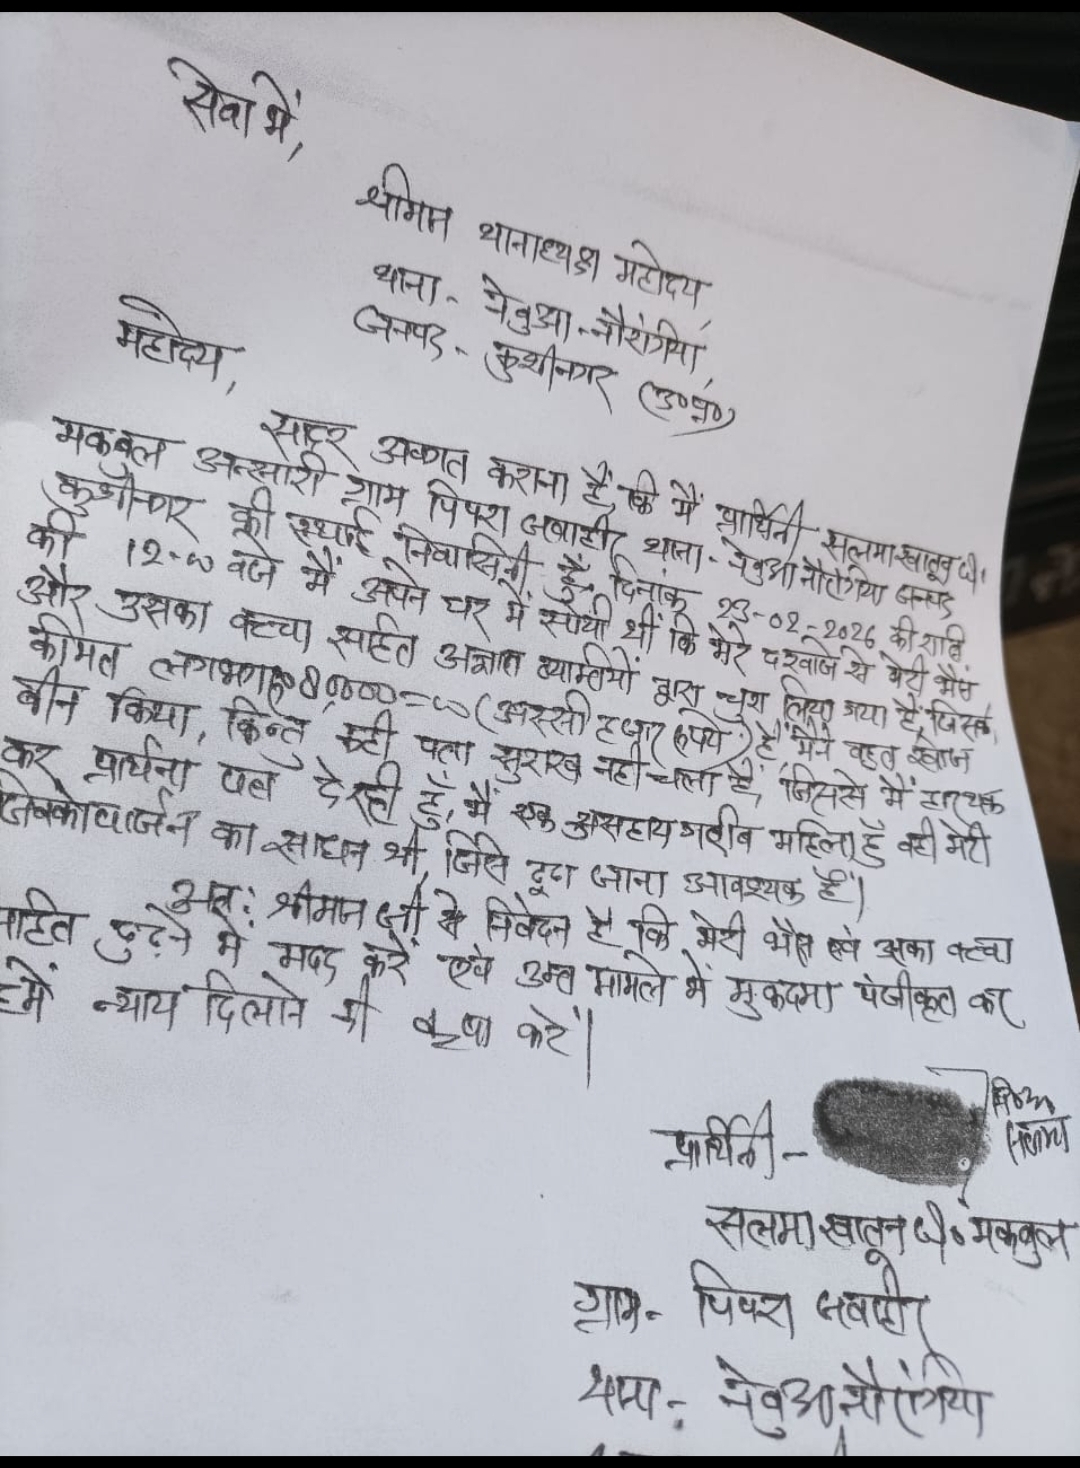 सेवा में,
श्रीमान थानाध्यक्ष महोदय,
थाना- नेबुआ-नौरंगिया,
जनपद- कुशीनगर (उ०प्र०)
महोदय,
सादर अवगत कराना है, कि मैं प्रार्थिनी सलमा खातून
मकबूल अन्सारी ग्राम पिपरा जबाही थाना- नेबुआ नौरंगिया जनपद
कुशीनगर की स्थाई निवासिनी हूँ, दिनांक 23-02-2026 की रात्रि
की 12-00 बजे मैं अपने घर में सोयी थी कि मेरे दरवाजे से मेरी भैंस
और उसका बच्चा सहित अज्ञात व्यक्तियों द्वारा चुरा लिया गया है, जिसकी
कीमत लगभग रु० 80,000=00 (अस्सी हजार रुपये) है, मैंने बहुत खोज
बीन किया, किन्तु कही पता सुराख नही चला है, जिससे मैं
कर प्रार्थना पत्र दे रही हूँ, मैं एक असहाय गरीब महिला हूँ वही मेरी
का साधन थी, जिसे ढूढा जाना आवश्यक है।
अतः श्रीमान जी से निवेदन है कि मेरी भैंस एवं उसका बच्चा
सहित ढुढ़ने में मदद करें एवं उक्त मामले में मुकदमा पंजीकृत कर
हमें न्याय दिलाने की कृपा करें।
प्रार्थिनी-
सलमा खातून मकबूल
ग्राम- पिपरा जबाही
थाना- नेबुआ नौरंगिया